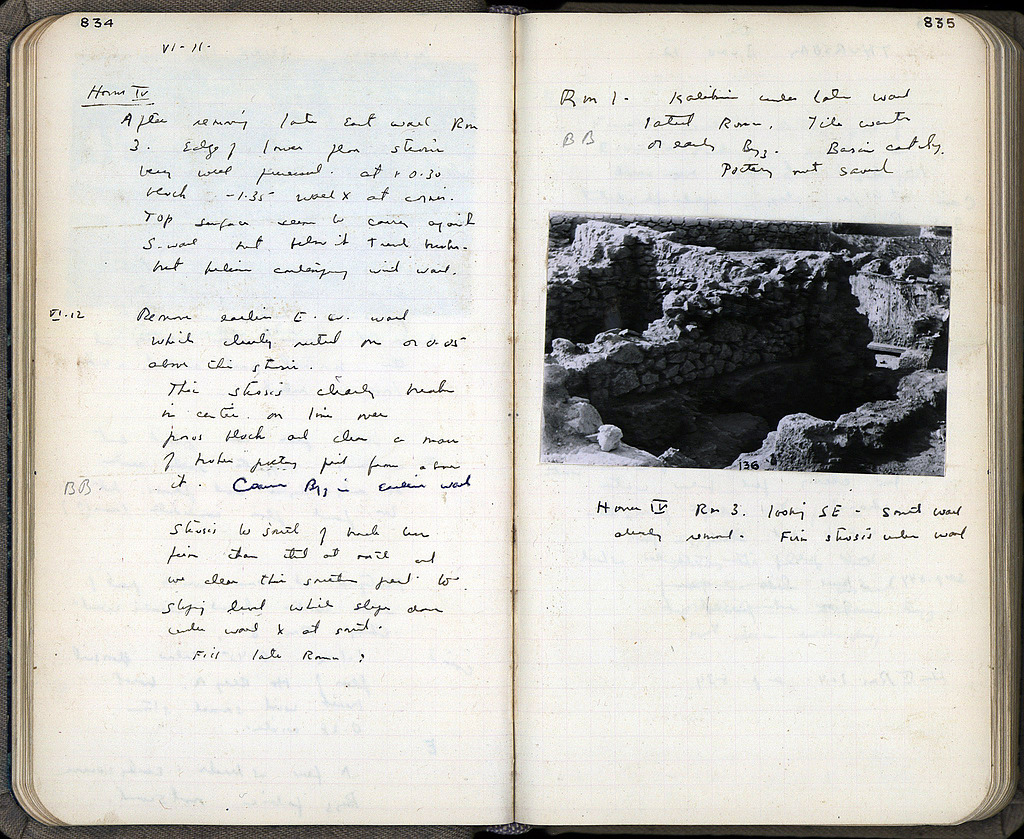 834
VI-11-
House IV
After removing late East wall Rm
3. Edge of lower floor sterosis
very well preserved. at + 0.30
block -1.35 wall X at corner.
Top surface seems to carry against
S. wall but below it
but
VI-12
Remove earlier E-W. wall
which clearly rested on or 0.05
above this sterosis.
This sterosis clearly breaks
in center on line over
poros block and clear a mass
of broken pottery just from above
BB
it. Coarse Byz in Earlier wall
Sterosis to South of break
firm than that at north and
we clear this southern part to
sloping level which slopes down
under wall X at south.
Fill late Roman ?
835
Rm 1. Kalathin under late wall
BB
latest Roman, Tile
or early Byz. Basin
Pottery not saved
136
House IV Rm 3. looking SE - South wall
already removed. Firm sterosis under wall